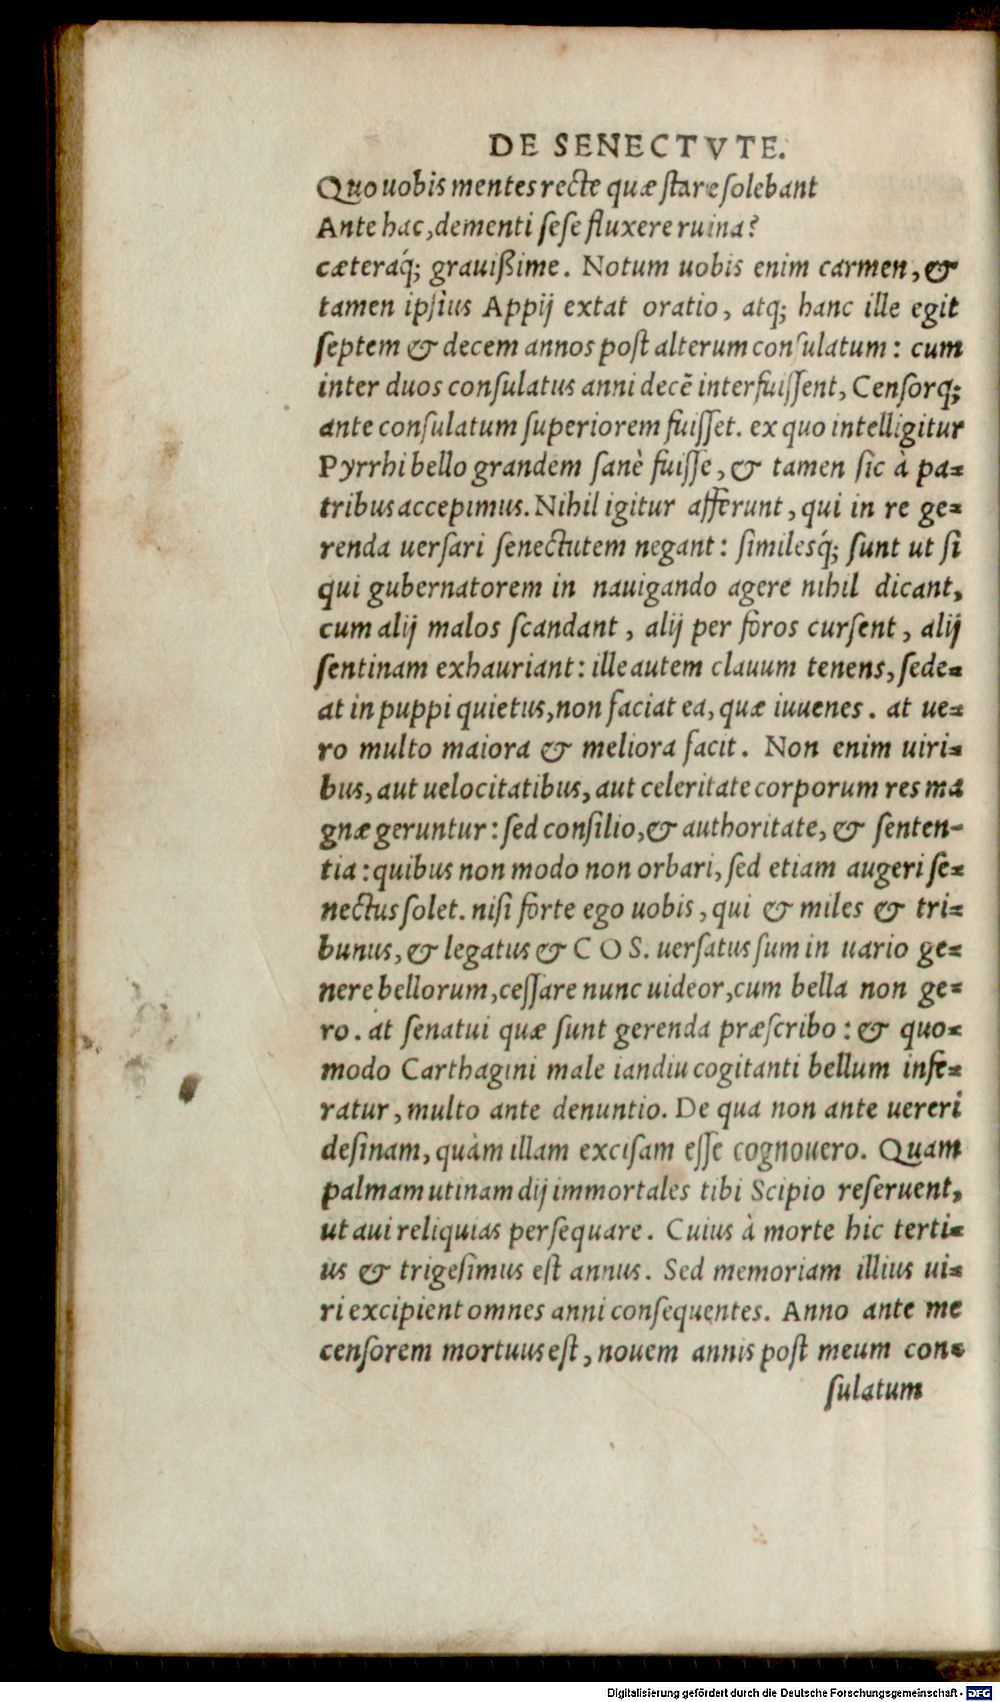 DE SENECTVTE.
Quo uobis mentes recte quæ stare solebant
Ante hac, dementi sese fluxere ruina?
cæteraq́; grauißime. Notum uobis enim carmen, &
tamen ipsius Appij extat oratio, atq; hanc ille egit
septem & decem annos post alterum consulatum: cum
inter duos consulatus anni decẽ interfuissent, Censorq;
ante consulatum superiorem fuisset. ex quo intelligitur
Pyrrhi bello grandem sanè fuisse, & tamen sic à pa=
tribus accepimus. Nihil igitur afferunt, qui in re ge=
renda uersari senectutem negant: similesq́; sunt ut si
qui gubernatorem in nauigando agere nihil dicant,
cum alij malos scandant, alij per foros cursent, alij
sentinam exhauriant: ille autem clauum tenens, sede=
at in puppi quietus, non faciat ea, quæ iuuenes. at ue=
ro multo maiora & meliora facit. Non enim uiri=
bus, aut uelocitatibus, aut celeritate corporum res ma
gnæ geruntur: sed consilio, & authoritate, & senten-
tia: quibus non modo non orbari, sed etiam augeri se=
nectus solet. nisi forte ego uobis, qui & miles & tri=
bunus, & legatus & COS. uersatus sum in uario ge=
nere bellorum, cessare nunc uideor, cum bella non ge=
ro. at senatui quæ sunt gerenda præscribo: & quo=
modo Carthagini male iandiu cogitanti bellum infe=
ratur, multo ante denuntio. De qua non ante uereri
desinam, quàm illam excisam esse cognouero. Quam
palmam utinam dij immortales tibi Scipio reseruent,
ut aui reliquias persequare. Cuius à morte hic terti=
us & trigesimus est annus. Sed memoriam illius ui=
ri excipient omnes anni consequentes. Anno ante me
censorem mortuus est, nouem annis post meum con=
sulatum
Digitalisierung gefördert durch die Deutsche Forschungsgemeinschaft - DFG